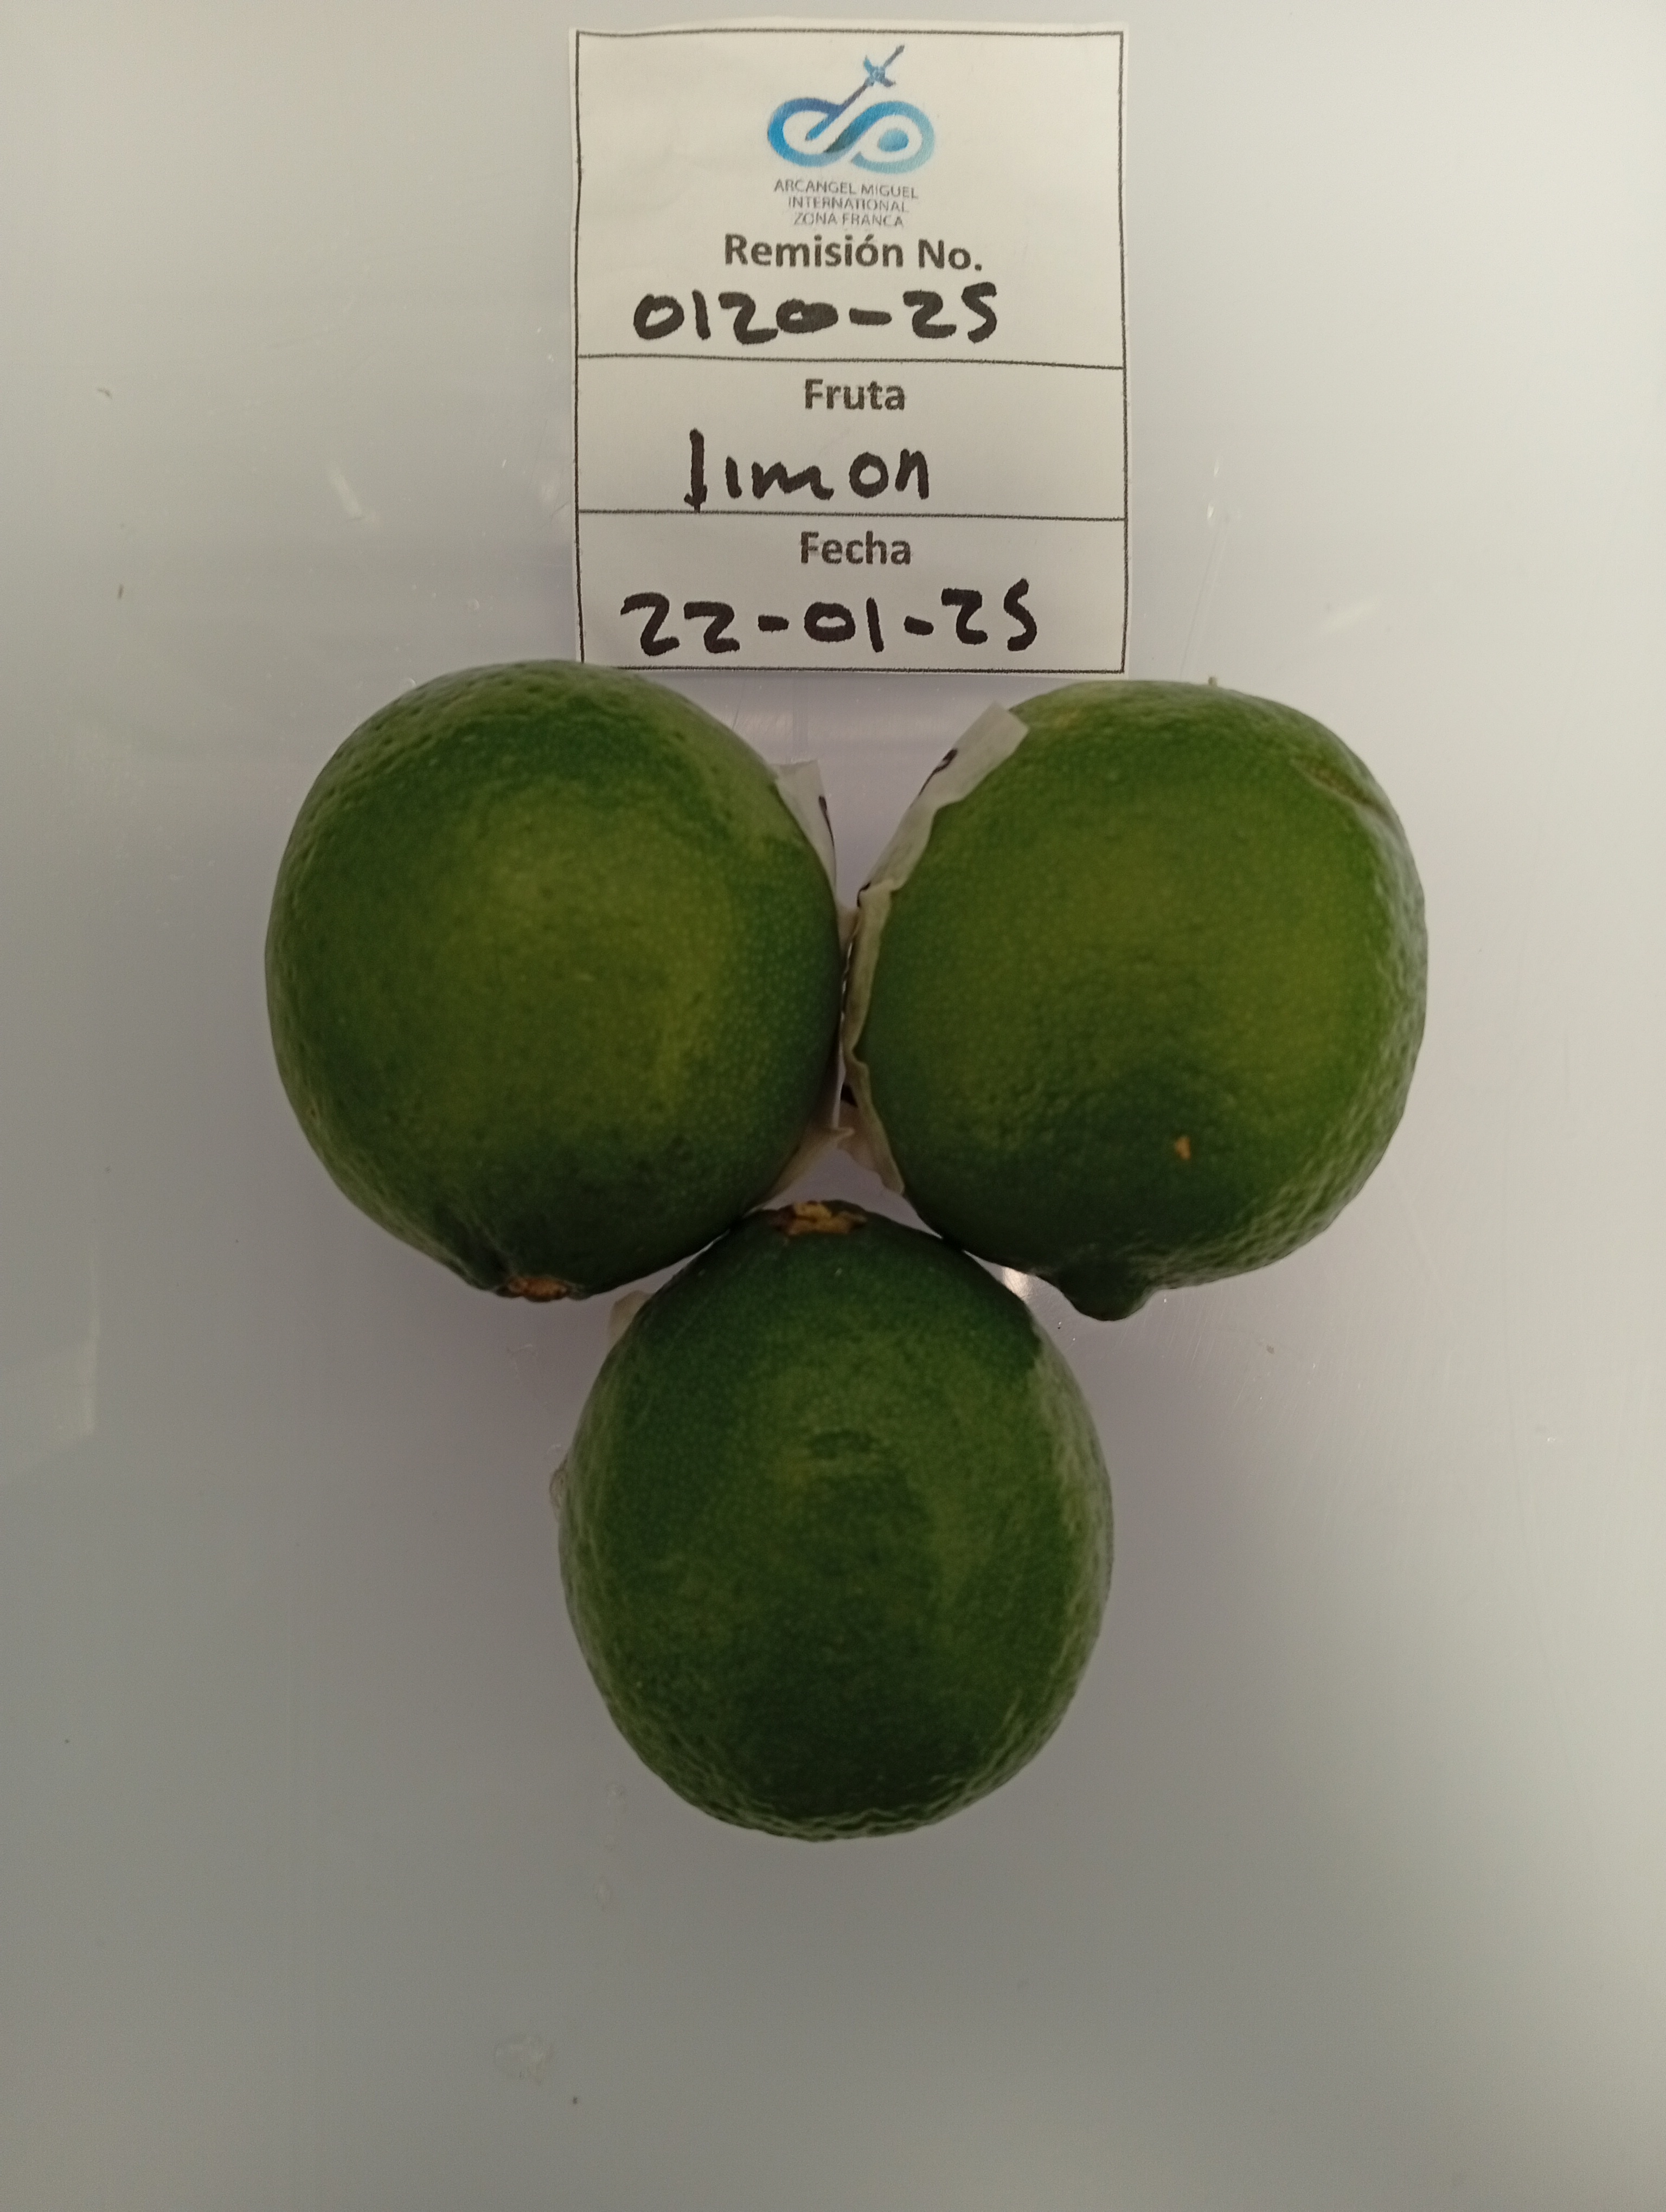 ARCANGEL MIGUEL
INTERNATIONAL
ZONA FRANCA
Remisión No.
0120-25
Fruta
limon
Fecha
22-01-25